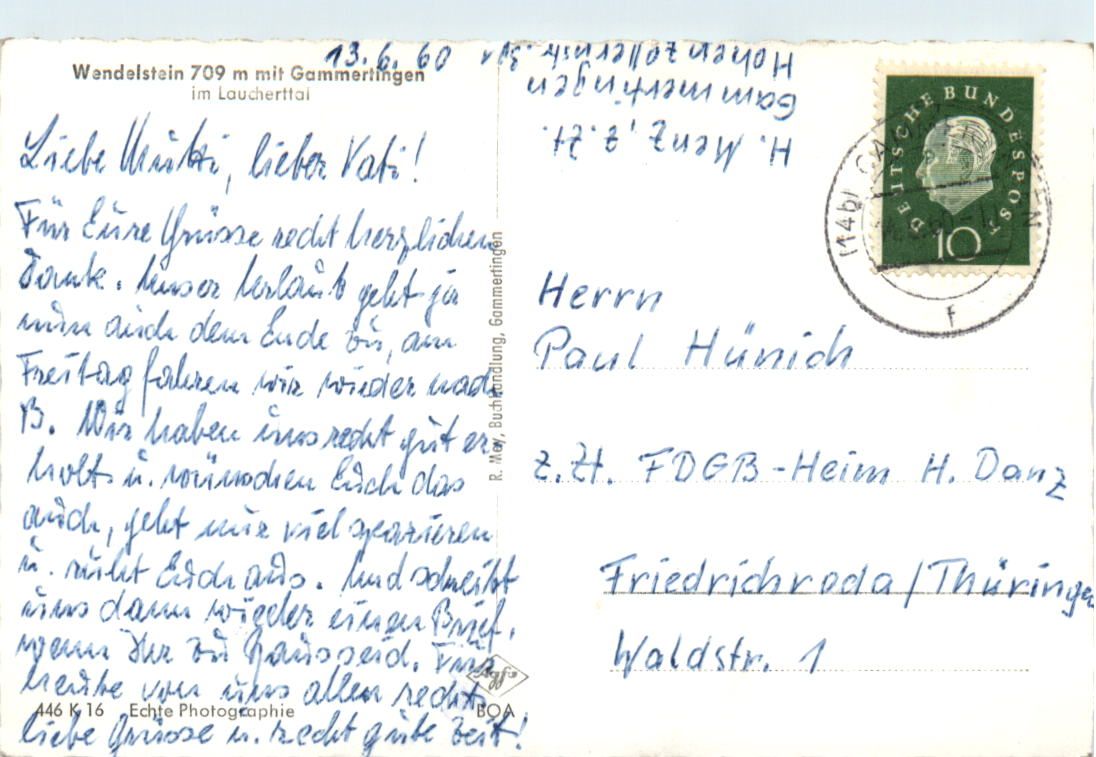 Wendelstein 709 m mit Gammertingen
im Laucherttal
13.6.60
Liebe Mutti, lieber Vati!
Für Eure Grüsse recht herzlichen
Dank. Unser Urlaub geht ja
nun auch dem Ende zu, am
Freitag fahren wir wieder nach
B. Wir haben uns recht gut er
holt u. wünschen Euch das
auch, geht nur viel spazieren
u. ruht Euch aus. Und schreibt
uns dann wieder einen Brief,
wenn Ihr zu Hause seid. Für
heute von uns allen recht
liebe Grüsse u. recht gute Zeit!
446 K 16 Echte Photographie
Agfa
BOA
R. May, Buchhandlung, Gammertingen
H. Menz, z. Zt.
Gammertingen
Hohenzollernstr.
DEUTSCHE BUNDESPOST
10
(14b)
f
Herrn
Paul Hünich
z. Zt. FDGB-Heim H. Danz
Friedrichroda/Thüringen
Waldstr. 1